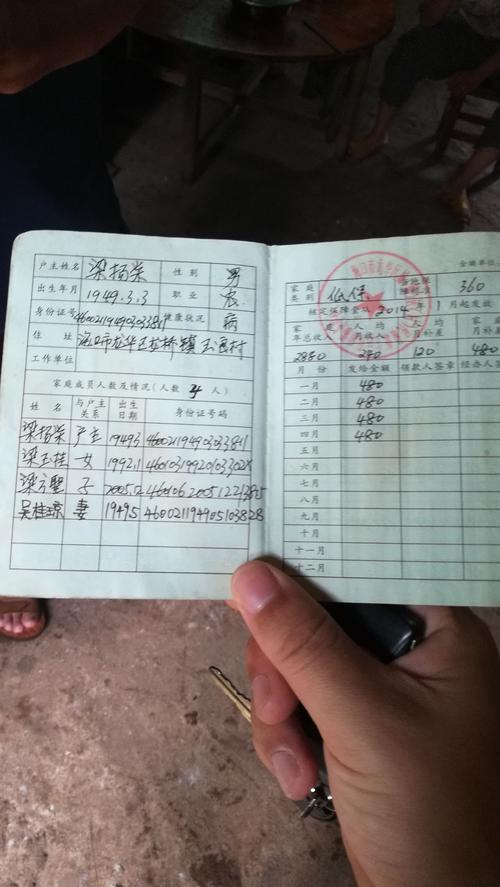 户主姓名 梁扬荣 性别 男
出生年月 1949.3.3 职业 农
身份证号 健康状况 病
住址 海口市龙华区龙桥镇 村
工作单位
家庭成员人数及情况(人数 4 人)
姓名 与户主关系 出生日期 身份证号码
梁扬荣 户主 19493
梁玉桂 女 1992.1
梁 子 200512
吴桂琼 妻 19495
金额单位:
家庭类别 低保 360
核定保障金从 2014 年 1 月起发放
家庭年总收入 人均月收入 人均月补差 家庭月补差
2880 240 120 480
月份 发给金额 领款人签章 经办人签
一月 480
二月 480
三月 480
四月 480
五月
六月
七月
八月
九月
十月
十一月
十二月